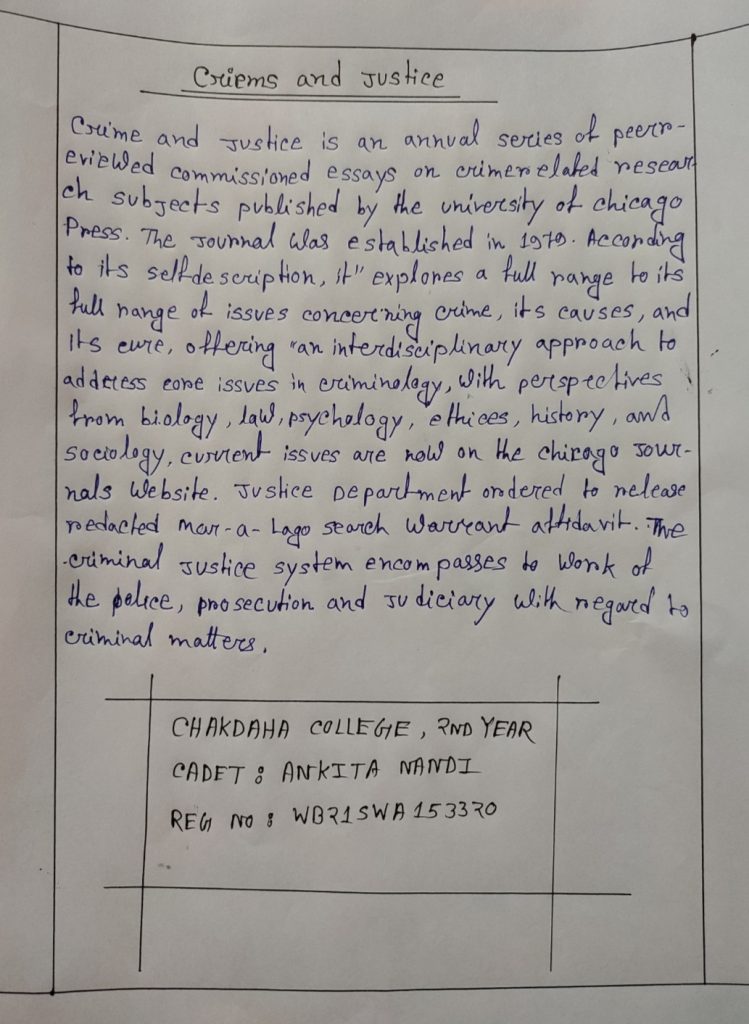 Criems and Justice
Crime and Justice is an annual series of peerr-
eviewed commissioned essays on crimerelated resear
ch subjects published by the university of chicago
Press. The Journal was established in 1979. According
to its selfdescription, it" explores a full range to its
full range of issues concerning crime, its causes, and
its cure, offering "an interdisciplinary approach to
address core issues in criminology, with perspectives
from biology, law, psychology, ethices, history, and
sociology, current issues are now on the chicago Jour-
nals website. Justice Department ordered to release
redacted Mar-a-Lago search warrant affidavit. The
criminal Justice system encompasses to work of
the police, prosecution and Judiciary with regard to
criminal matters.
CHAKDAHA COLLEGE, 2ND YEAR
CADET : ANKITA NANDI
REG NO : WB21SWA153320